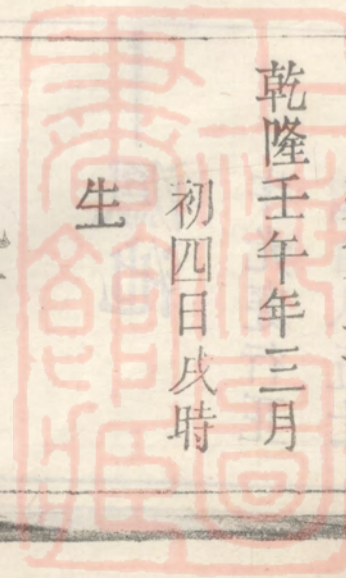 乾隆壬午年三月
初四日戌時
生